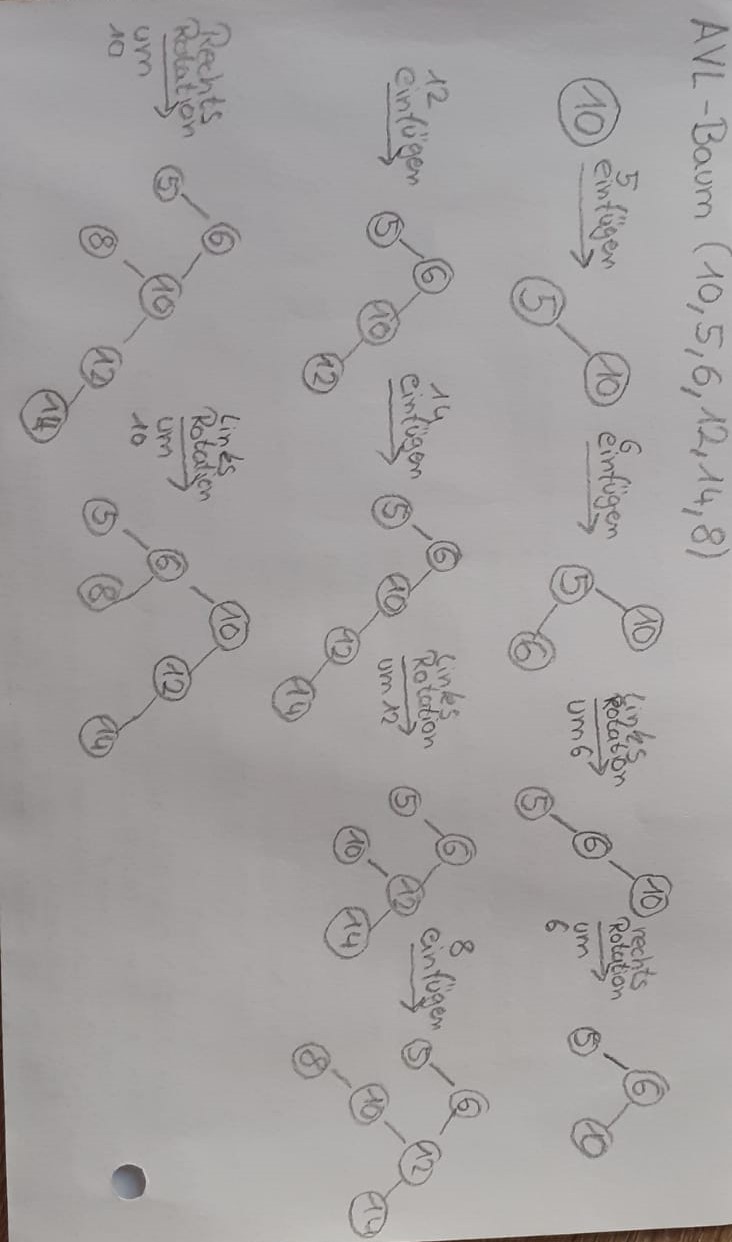 AVL-Baum (10,5,6,12,14,8)
10
5
einfügen
10
5
6
einfügen
10
5
6
Links
Rotation
um 6
10
6
5
rechts
Rotation
um
6
6
5 10
12
einfügen
6
5 10
12
14
einfügen
6
5 10
12
14
Links
Rotation
um 12
6
5 12
10 14
8
einfügen
6
5 12
10 14
8
Rechts
Rotation
um
10
6
5 10
8 12
14
Links
Rotation
um
10
10
6 12
5 8 14